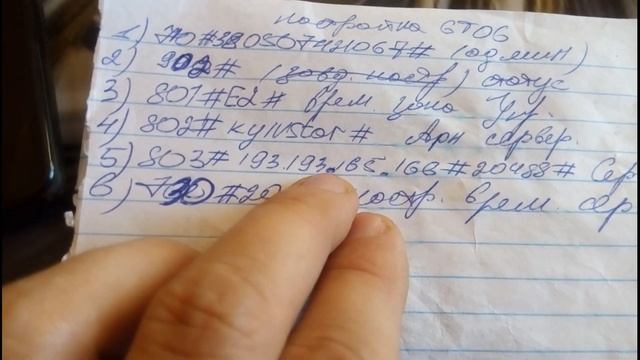 настройка GT06
1) 710#380507421067# (админ)
2) 902# (завд. настр) статус
3) 801#E2# врем. зона Укр.
4) 802# kyivstar# Apn сервер.
5) 803#193.193.165.166#20488# Сер
6) 730#20 настр. врем. сер